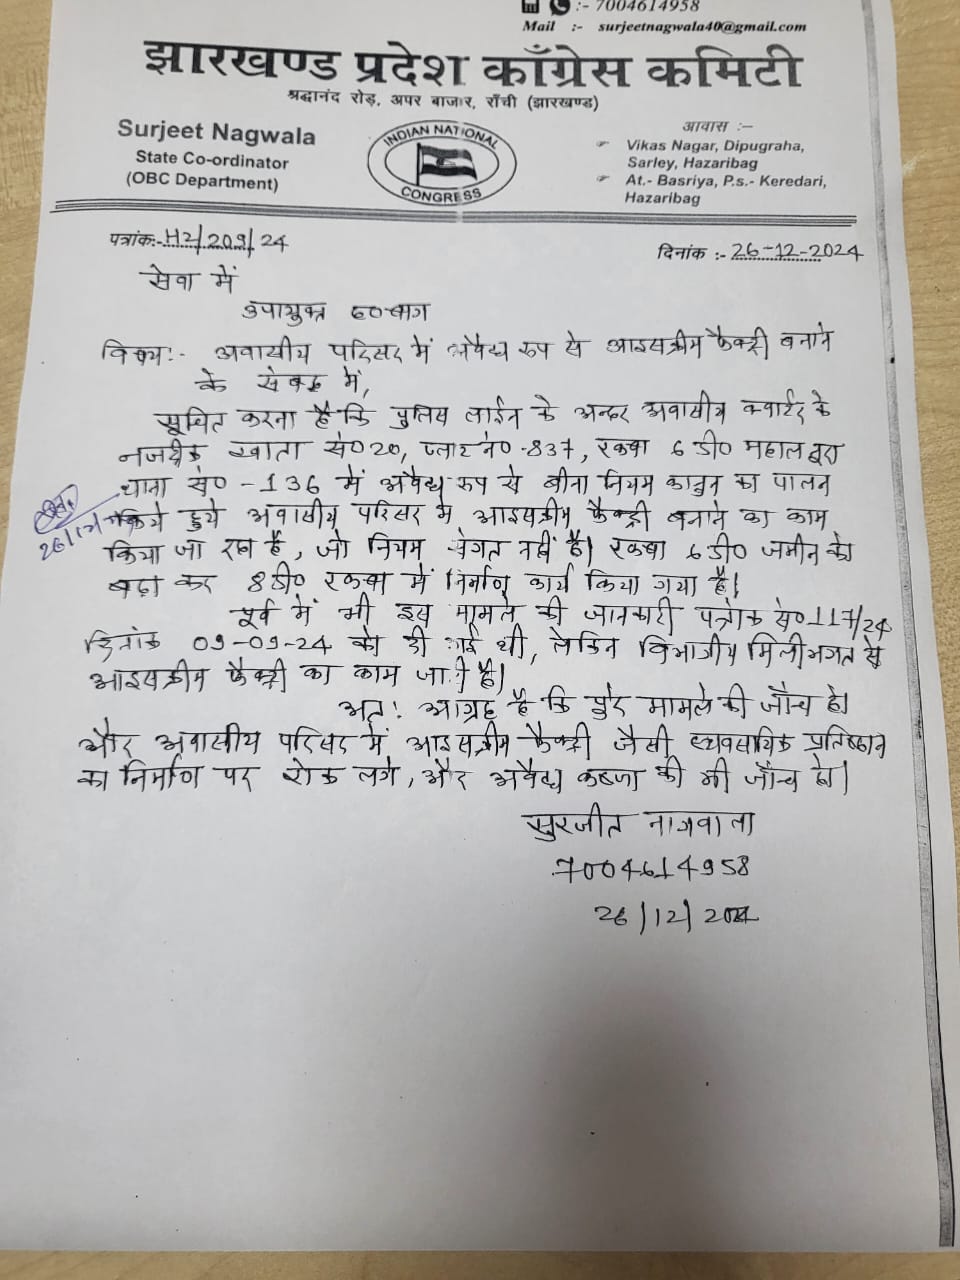 :- 7004614958
Mail :- surjeetnagwala40@gmail.com
झारखण्ड प्रदेश काँग्रेस कमिटी
श्रद्धानंद रोड़, अपर बाजार, राँची (झारखण्ड)
Surjeet Nagwala
State Co-ordinator
(OBC Department)
INDIAN NATIONAL
CONGRESS
आवास :–
Vikas Nagar, Dipugraha,
Sarley, Hazaribag
At.- Basriya, P.s.- Keredari,
Hazaribag
पत्रांक:- HZ/209/24
दिनांक :- 26-12-2024
सेवा में
उपायुक्त
विषय:- अवासीय परिसर में अवैध रुप से आइसक्रीम फैक्ट्री बनाने
के संबंध में,
सूचित करना है कि पुलिस लाईन के अन्दर अवासीय क्वार्टर के
नजदीक खाता सं० 20, प्लाट नं० -837, रकबा 6 डी०
थाना सं० -136 में अवैध रुप से बीना नियम कानुन का पालन
किये हुये अवासीय परिसर में आइसक्रीम फैक्ट्री बनाने का काम
किया जा रहा है, जो नियम संगत नहीं है। रकबा 6 डी० जमीन को
बढ़ा कर 8 डी० रकबा में निर्माण कार्य किया गया है।
पूर्व में भी इस मामले की जानकारी पत्रांक सं० 117/24
दिनांक 09-09-24 को दी गई थी, लेकिन विभागीय मिलीभगत से
आइसक्रीम फैक्ट्री का काम जारी है।
अतः आग्रह है कि पुरे मामले की जाँच हो।
और अवासीय परिसर में आइसक्रीम फैक्ट्री जैसी व्यवसायिक प्रतिष्ठान
का निर्माण पर रोक लगे, और अवैध कब्जा की भी जाँच हो।
सुरजीत नागवाला
7004614958
26/12/2024